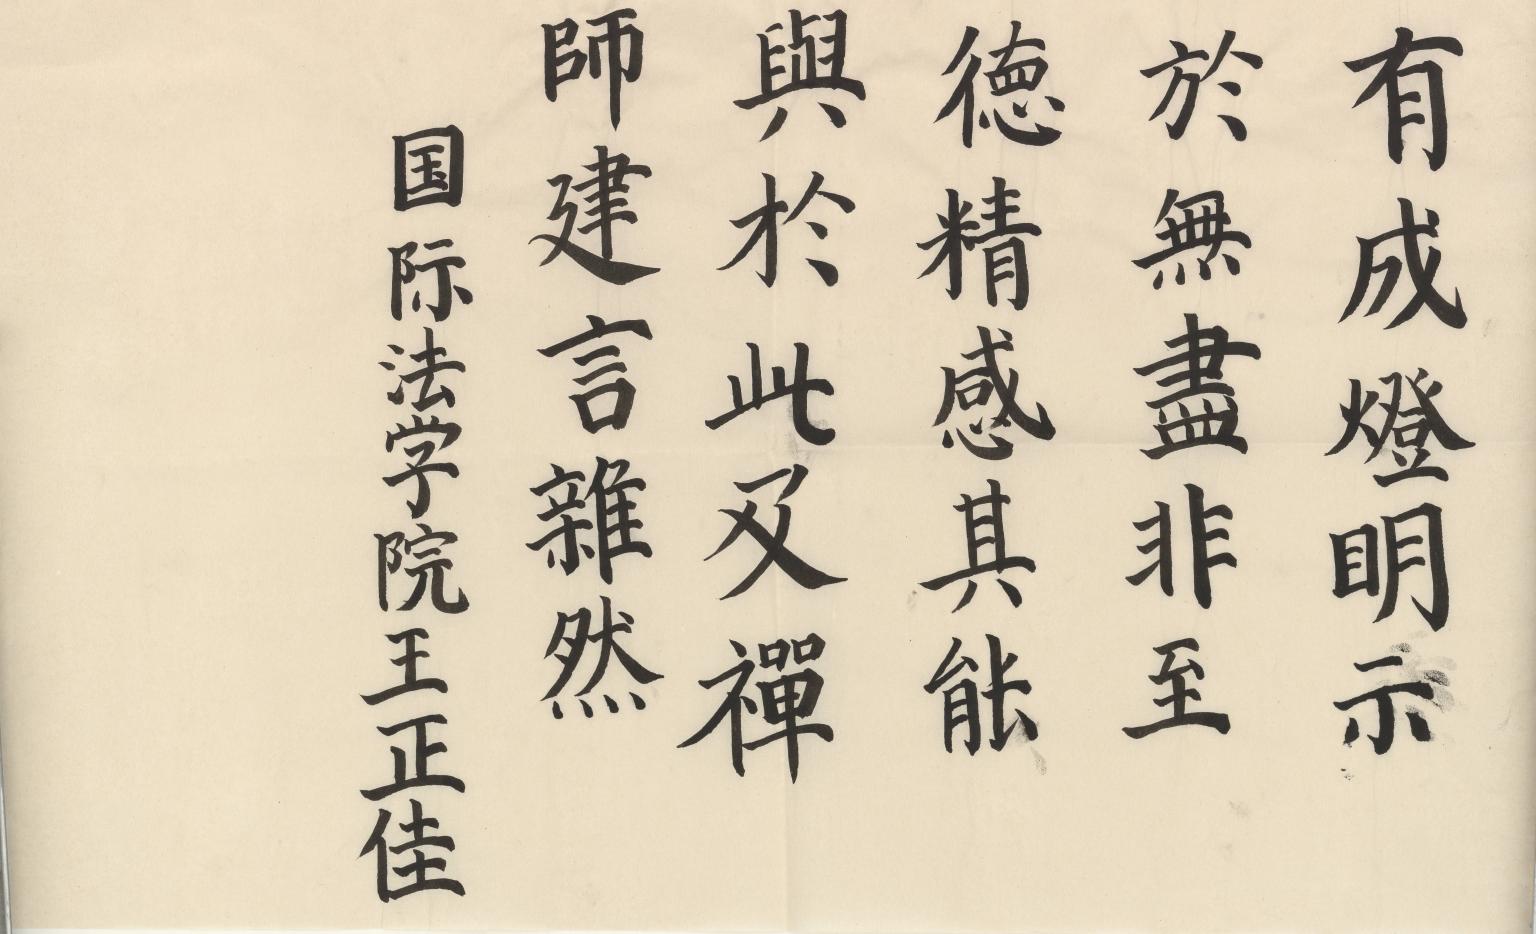 有成燈明示
於無盡非至
德精感其能
與於此及禪
師建言雜然
国际法学院王正佳